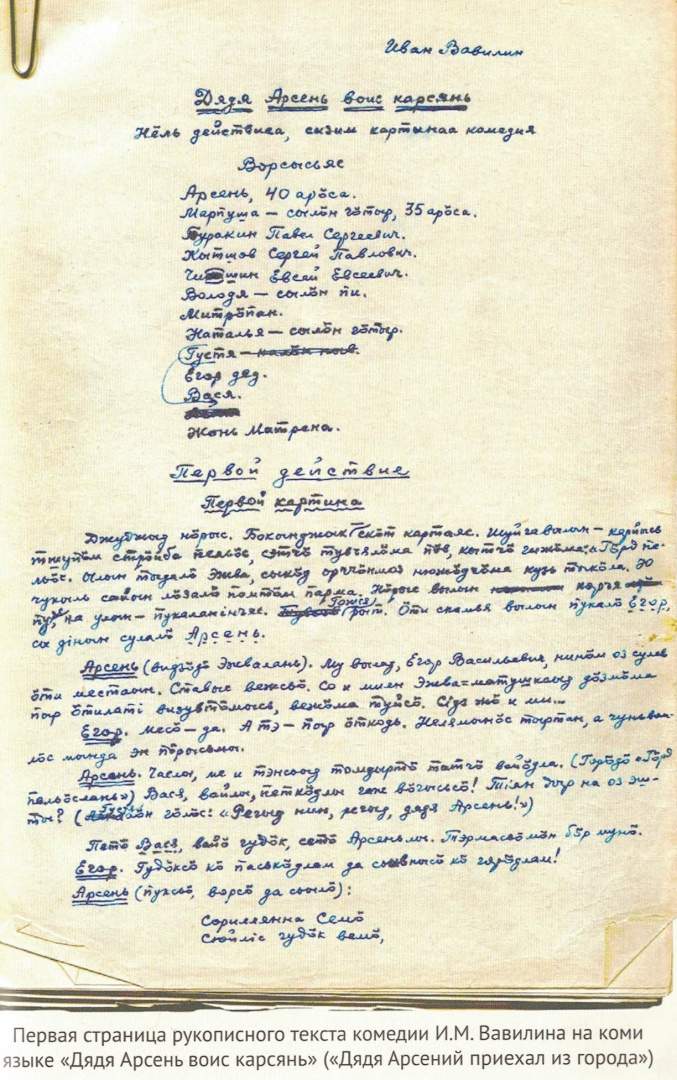 Иван Вавилин
Дядя Арсень воис карсянь
Нёль действиеа, сизим картинаа комедия
Ворсысьяс
Арсень, 40 арӧса.
Марпуша — сылӧн гӧтыр, 35 арӧса.
Буракин Павел Сергеевич.
Жытшов Сергей Павлович.
Евсей Евсеевич.
Володя — сылӧн пи.
Митрӧпан.
Наталья — сылӧн гӧтыр.
Густя —
Егор дед.
Вася.
Жонь Матрена.
Первой действие
Первой картина
Джуджыд нӧрыс. Бокынджык скӧт картаяс. Шуйгавылын —
пӧв, кытчӧ гижӧма: «Гӧрд пе-
льӧс. Ылын тыдалӧ Эжва, сыкӧд орччӧнмоз нюжӧдчӧма кузь тыкӧла. Эз
чукыль сайын лӧзалӧ помтӧм парма. Нӧрыс вылын
улын — пукаланінъяс. Ӧти скамья вылын пукалӧ Егор,
сы дінын сулалӧ Арсень.
Арсень (видзӧдӧ Эжвалань). Му вылад, Егор Васильевич, нинӧм оз сулав
ӧти местаын. Ставыс вежсьӧ. Со и миян Эжва-матушкаыд дозмӧма
пыр ӧтилаті визувтӧмысь, вежӧма туйсӧ. Сідз жӧ и ми...
Егор. Мест — да. А тэ — пыр ӧткодь. Нелямынӧс тыртан, а чужӧмвы-
лӧс мында эн пӧрысьмы.
Арсень. Часлы, ме и тэнсьыд томдыртӧ татчӧ вайӧдла. (Горӧдӧ «Гӧрд
пельӧслань») Вася, вайлы, петкӧдлы гажвӧчысьсӧ! Тіян дыр на оз эш-
ты? ( гӧлӧс: «Регыд нин, регыд, дядя Арсень!»)
Петӧ Вася, вайӧ гудӧк, сетӧ Арсеньлы. Тэрмасьӧмӧн бӧр мунӧ.
Егор. Гудӧксӧ кӧ паськӧдлам да сьывнысӧ кӧ гӧрӧдлам!
Арсень (пуксьӧ, ворсӧ да сьылӧ):
Сорилляинна Семӧ
Сюйліс гудӧк вемӧ,
Первая страница рукописного текста комедии И.М. Вавилина на коми
языке «Дядя Арсень воис карсянь» («Дядя Арсений приехал из города»)